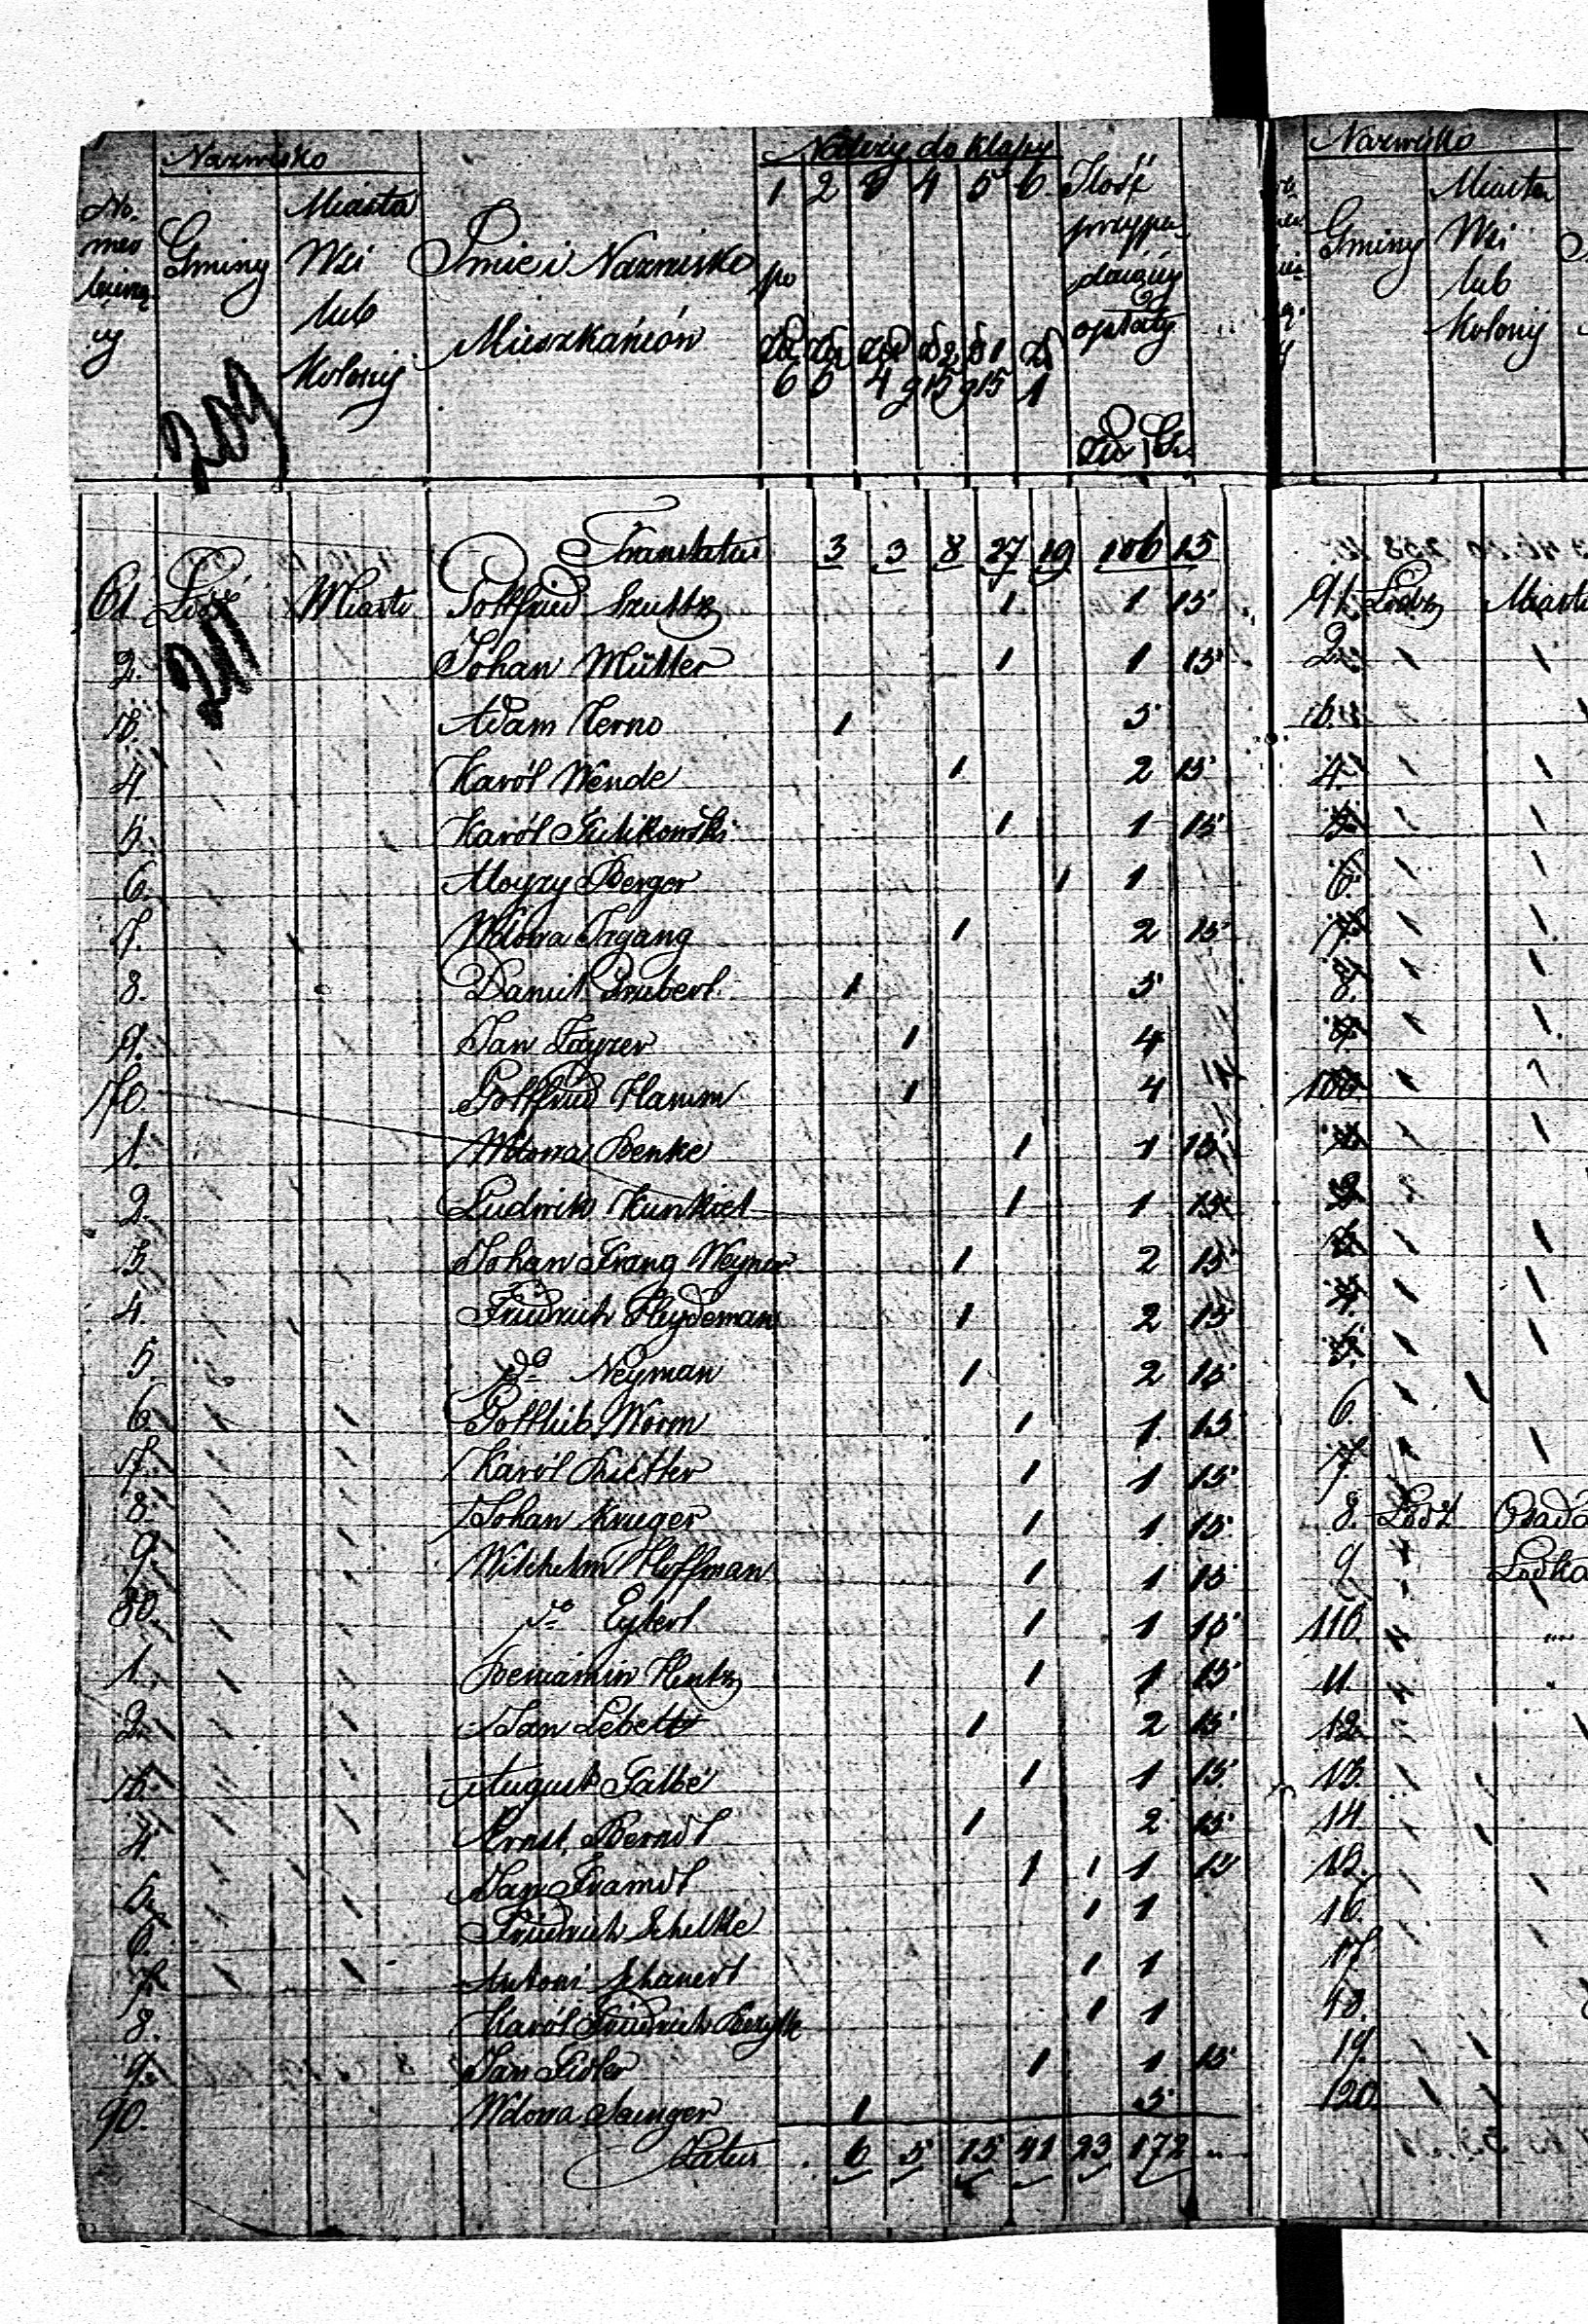 Nazwisko Należy do klassy
No. mer bieżą cy Gminy Miasta Wsi lub Kolonij Imie i Nazwisko Mieszkańców 1 2 3 4 5 6 Ilość przypa daiący opłaty
po
6 5 4 2 g 15 1 g 15 1
209
Translatus 3 3 8 27 19 106 15
61 Łódź Miasto Gottfried Szultz 1 1 15
211
2. Johan Müller 1 1 15
3. Adam Zerno 1 5
4. Karól Wende 1 2 15
5. Karól Gutikowski 1 1 15
6. Moyzy Berger 1 1
7. Wdowa Irgang 1 2 15
8. Daniel Grubert 1 5
9. Jan Tayzer 1 4
70. Gottfried Hamm 1 4
1. Wdowa Benke 1 1 15
2. Ludwik Kunkiel 1 1 15
3. Johan Franz Weyner 1 2 15
4. Friedrich Heydeman 1 2 15
5. do Neyman 1 2 15
6. Gottlieb Worm 1 1 15
7. Karól 1 1 15
8. Johan Krüger 1 1 15
9. Wilhelm Hoffman 1 1 15
80. do Eylert 1 1 15
1. Beniamin Hentz 1 1 15
2. Jan Lebelt 1 2 15
3. August Falbe 1 1 15
4. Ernst Berndt 1 2 15
5. Jan Framdt 1 1 1 15
6. Friedrich Schelke 1 1
7. Antoni Schauert 1 1
8. Karól Friedrich 1 1
9. Jan Fidler 1 1 15
90. Wdowa Sainger 1 5
Latus 6 5 15 41 23 172 ..
Nazwisko
Gminy Miasta Wsi lub Kolonij
91. Łódz Miasto
2.
3.
4.
5.
6.
7.
8.
9.
100.
1.
2.
3.
4.
5.
6.
7.
8. Łódź Osada
9 Łodka
110.
11.
12.
13.
14.
15.
16.
17.
18.
19.
120.